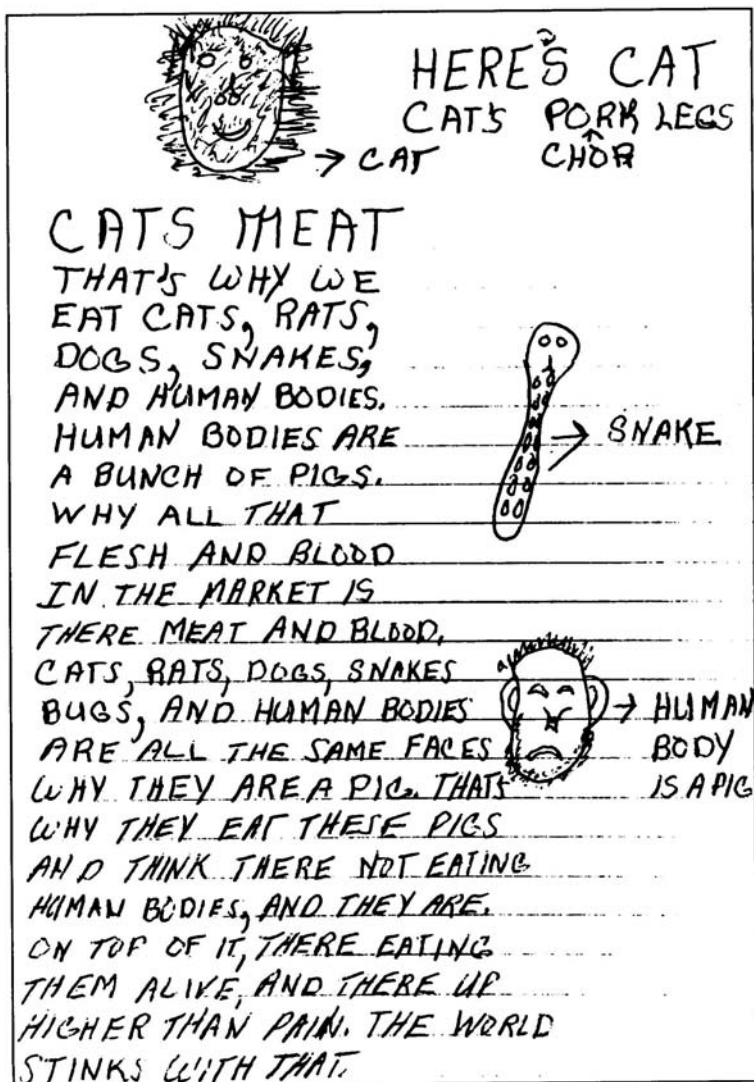 HERE'S CAT
CAT'S PORK LEGS
CHOP
CAT
CATS MEAT
THAT'S WHY WE
EAT CATS, RATS,
DOGS, SNAKES,
AND HUMAN BODIES.
HUMAN BODIES ARE
A BUNCH OF PIGS.
WHY ALL THAT
FLESH AND BLOOD
IN THE MARKET IS
THERE MEAT AND BLOOD.
CATS, RATS, DOGS, SNAKES
BUGS, AND HUMAN BODIES
ARE ALL THE SAME FACES
WHY THEY ARE A PIG. THATS
WHY THEY EAT THESE PIGS
AND THINK THERE NOT EATING
HUMAN BODIES, AND THEY ARE.
ON TOP OF IT, THERE EATING
THEM ALIVE, AND THERE UP
HIGHER THAN PAIN. THE WORLD
STINKS WITH THAT.
SNAKE
HUMAN
BODY
IS A PIG